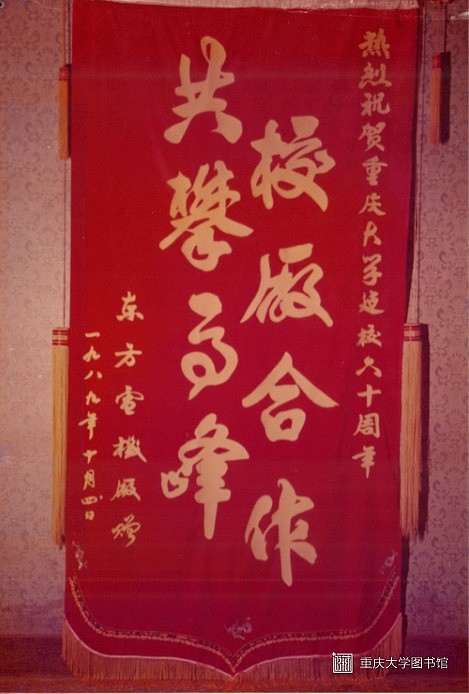 热烈祝贺重庆大学建校六十周年
校厰合作
共攀高峰
东方电机厰赠
一九八九年十月四日
重庆大学图书馆